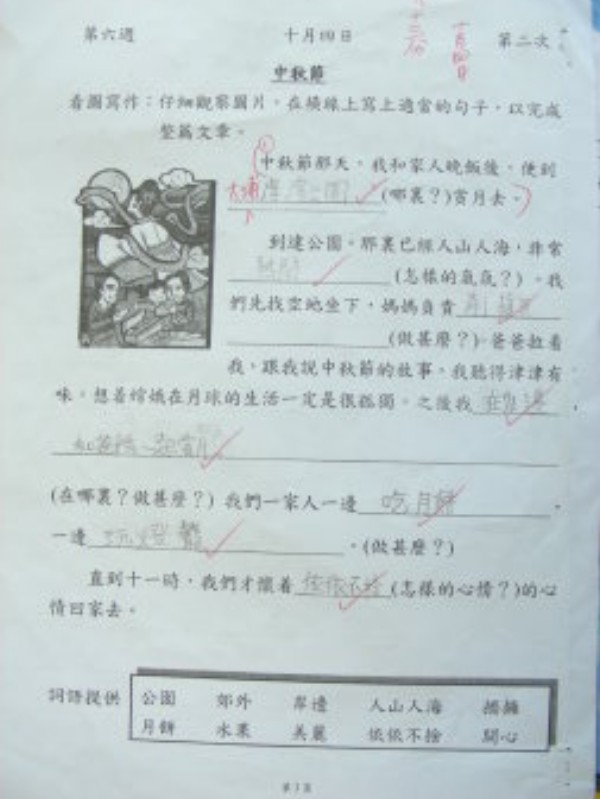 第六週 十月四日 第二次
中秋節
看圖寫作：仔細觀察圖片，在橫線上寫上適當的句子，以完成
整篇文章。
中秋節那天，我和家人晚飯後，便到
大埔海濱公園(哪裏？)賞月去。
到達公園。那裏已經人山人海，非常
(怎樣的氣氛？)。我
們先找空地坐下，媽媽負責
(做甚麼？)，爸爸拉着
我，跟我說中秋節的故事。我聽得津津有
味。想着嫦娥在月球的生活一定是很孤獨。之後我
和爸爸一起賞月
(在哪裏？做甚麼？) 我們一家人一邊吃月餅，
一邊玩燈籠。(做甚麼？)
直到十一時，我們才懷着依依不捨(怎樣的心情？)的心
情回家去。
詞語提供
公園 郊外 岸邊 人山人海
月餅 水果 美麗 依依不捨 開心
第3頁